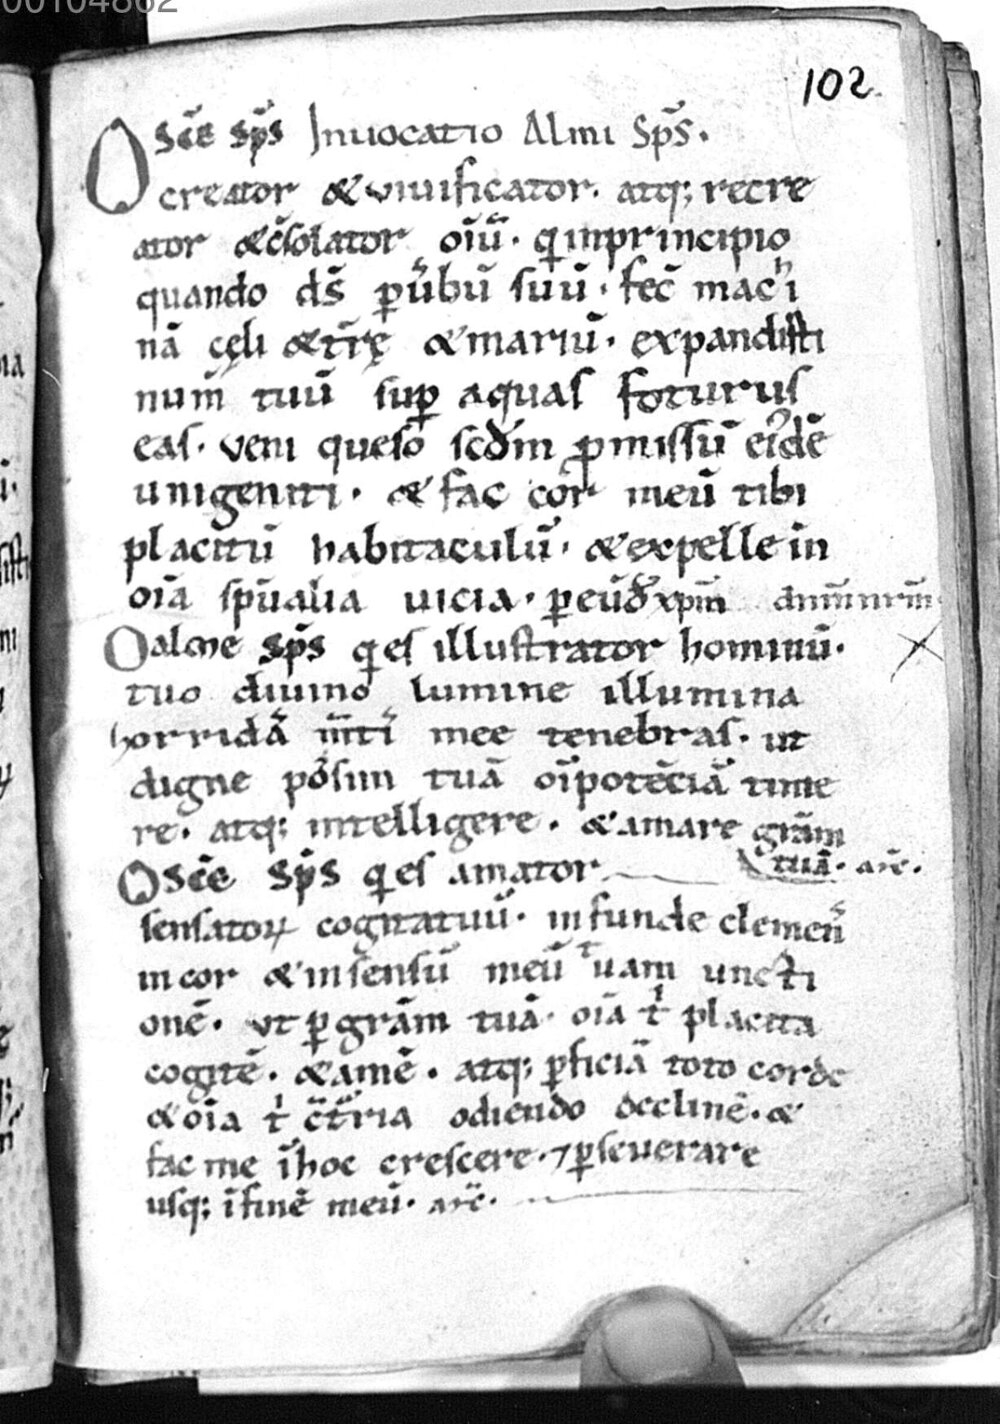 00104862
102
O sc̄e sp̄s Inuocatio Almi Sp̄s.
creator & viuificator. atq; recre
ator & c̄solator oīū. qͥ inprincipio
quando ds̄ ꝑ uͥbū suū. fec̄ machi
nā cęli & tr̄ę & mariū. expandisti
num̄ tuū suꝑ aquas foturus
eas. veni queso scd̄m ꝓmissū eiͥdē
unigeniti. & fac cor meū tibi
placitū habitaculū. & expelle in
oīa sp̄ualia uicia. ꝑ eūd̄ xp̄m dn̄m nr̄m.
O alme sp̄s qͥ es illustrator hominū.
tuo diuino lumine illumina
horridaͤ m̄tiͥ mee tenebras. ut
digne possim tuā oīpotēciā time
re. atq; intelligere. & amare grām
tuā. am̄.
O sc̄e sp̄s qͥ es amator
sensatoꝝ cogitatuū. infunde clemen̄
in cor & in sensū meū tuam uncti
onē. vt ꝑ grām tuā. oīa tͥ placita
cogitē. & amē. atq; ꝑficiā toto corde
& oīa tͥ c̄t̄ria odiendo declinē. &
fac me īhoc crescere. ⁊ ꝑseuerare
usq; ī finē meū. am̄.